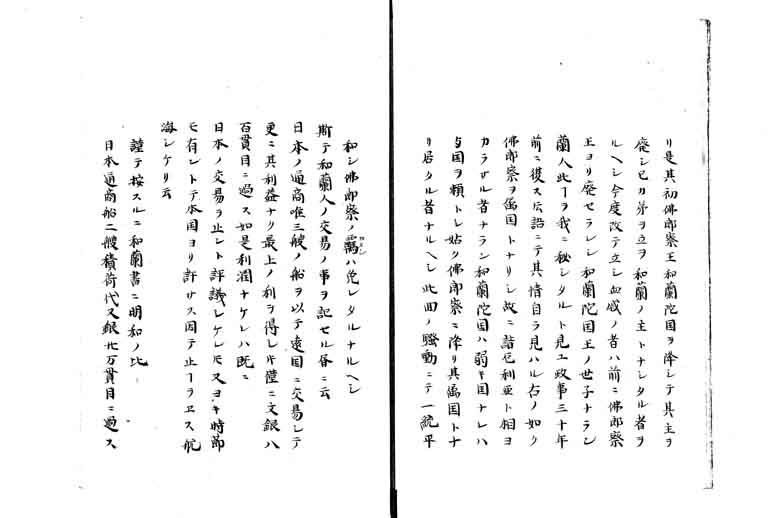 リ是其初佛郎察王和蘭陀国ヲ降シテ其主ヲ
廃シ己カ弟ヲ立ヲ和蘭ノ主トナシタル者ヲ
ルヘシ今度改テ立シ血戚ノ者ハ前ニ佛郎察
王ヨリ廃セラレシ和蘭陀国王ノ世子ナラン
蘭人此ヿヲ我ニ秘シタルト見ユ政事三十年
前ニ復ス云語ニテ其情自ラ見ハル右ノ如ク
佛郎察ヲ属国トナリシ故ニ諳厄利亜ト相ヨ
カラザル者ナラン和蘭陀国ハ弱キ国ナレハ
与国ヲ頼トレ姑ク佛郎察ニ降リ其属国トナ
リ居タル者ナルヘシ此囬ノ騒動ニテ一統平
和シ佛郎察ノ羈ハ免レタルナルヘシ
斯テ和蘭人ノ交易ノ事ヲ記セル各ニ云
日本ノ通商唯三艘ノ船ヲ以テ遠国ニ交易レテ
更ニ其利益ナク最上ノ利ヲ得レ𪜈僅ニ文銀八
百貫目ニ過ス如是利潤ナケレハ既ニ
日本ノ交易ヲ止レト評議レケレ𪜈又ヨキ時節
モ有レトテ本国ヨリ許サス因テ止ヿヲヱス航
海シケリ云
謹テ按スルニ和蘭書ニ明和ノ比
日本通商船二艘積荷代又銀廿万貫目ニ過ス